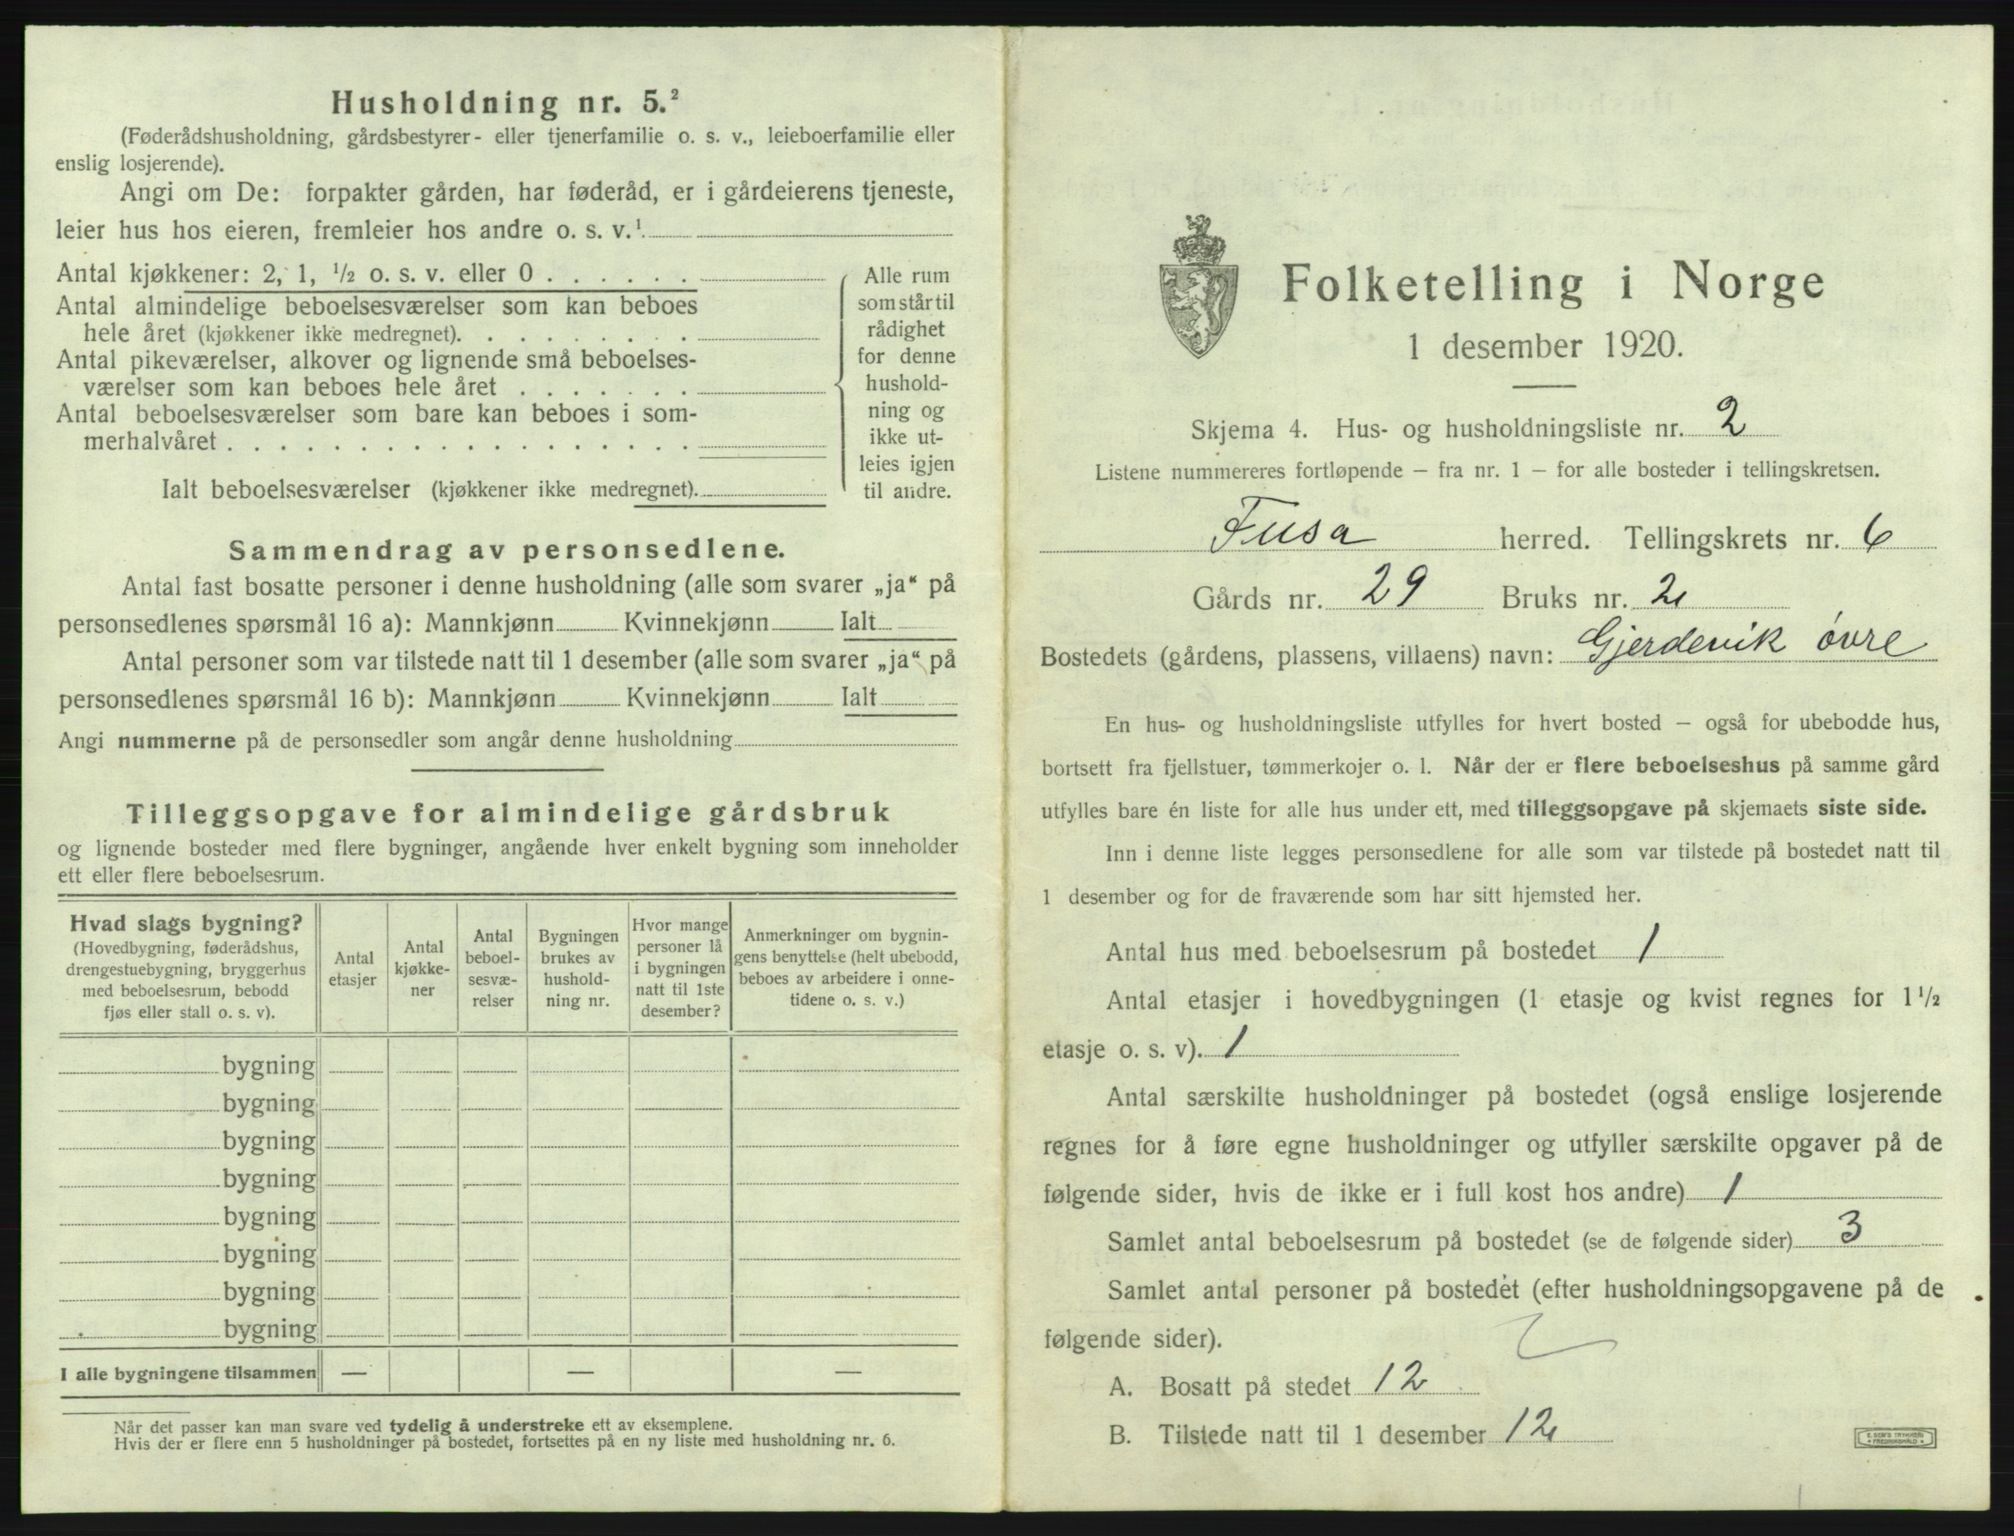 Husholdning nr. 5.²
(Føderådshusholdning, gårdsbestyrer- eller tjenerfamilie o. s. v., leieboerfamilie eller
enslig losjerende).
Angi om De: forpakter gården, har føderåd, er i gårdeierens tjeneste,
leier hus hos eieren, fremleier hos andre o. s. v.¹
Antal kjøkkener: 2, 1, ½ o. s. v. eller 0
Antal almindelige beboelsesværelser som kan beboes
hele året (kjøkkener ikke medregnet).
Antal pikeværelser, alkover og lignende små beboelses-
værelser som kan beboes hele året
Antal beboelsesværelser som bare kan beboes i som-
merhalvåret
Ialt beboelsesværelser (kjøkkener ikke medregnet).
Alle rum
som står til
rådighet
for denne
hushold-
ning og
ikke ut-
leies igjen
til andre.
Sammendrag av personsedlene.
Antal fast bosatte personer i denne husholdning (alle som svarer „ja“ på
personsedlenes spørsmål 16 a): Mannkjønn Kvinnekjønn Ialt
Antal personer som var tilstede natt til 1 desember (alle som svarer „ja“ på
personsedlenes spørsmål 16 b): Mannkjønn Kvinnekjønn Ialt
Angi nummerne på de personsedler som angår denne husholdning
Tilleggsopgave for almindelige gårdsbruk
og lignende bosteder med flere bygninger, angående hver enkelt bygning som inneholder
ett eller flere beboelsesrum.
Hvad slags bygning?
(Hovedbygning, føderådshus,
drengestuebygning, bryggerhus
med beboelsesrum, bebodd
fjøs eller stall o. s. v).
Antal
etasjer
Antal
kjøkke-
ner
Antal
beboel-
sesvæ-
relser
Bygningen
brukes av
hushold-
ning nr.
Hvor mange
personer lå
i bygningen
natt til 1ste
desember?
Anmerkninger om bygnin-
gens benyttelse (helt ubebodd,
beboes av arbeidere i onne-
tidene o. s. v.)
bygning
bygning
bygning
bygning
bygning
bygning
bygning
bygning
I alle bygningene tilsammen — — —
Når det passer kan man svare ved tydelig å understreke ett av eksemplene.
Hvis der er flere enn 5 husholdninger på bostedet, fortsettes på en ny liste med husholdning nr. 6.
Folketelling i Norge
1 desember 1920.
Skjema 4. Hus- og husholdningsliste nr. 2
Listene nummereres fortløpende — fra nr. 1 — for alle bosteder i tellingskretsen.
Fusa herred. Tellingskrets nr. 6
Gårds nr. 29 Bruks nr. 2
Bostedets (gårdens, plassens, villaens) navn: Gjerdevik övre
En hus- og husholdningsliste utfylles for hvert bosted — også for ubebodde hus,
bortsett fra fjellstuer, tømmerkojer o. l. Når der er flere beboelseshus på samme gård
utfylles bare én liste for alle hus under ett, med tilleggsopgave på skjemaets siste side.
Inn i denne liste legges personsedlene for alle som var tilstede på bostedet natt til
1 desember og for de fraværende som har sitt hjemsted her.
Antal hus med beboelsesrum på bostedet 1
Antal etasjer i hovedbygningen (1 etasje og kvist regnes for 1½
etasje o. s. v). 1
Antal særskilte husholdninger på bostedet (også enslige losjerende
regnes for å føre egne husholdninger og utfyller særskilte opgaver på de
følgende sider, hvis de ikke er i full kost hos andre) 1
Samlet antal beboelsesrum på bostedet (se de følgende sider) 3
Samlet antal personer på bostedet (efter husholdningsopgavene på de
følgende sider).
A. Bosatt på stedet 12
B. Tilstede natt til 1 desember 12